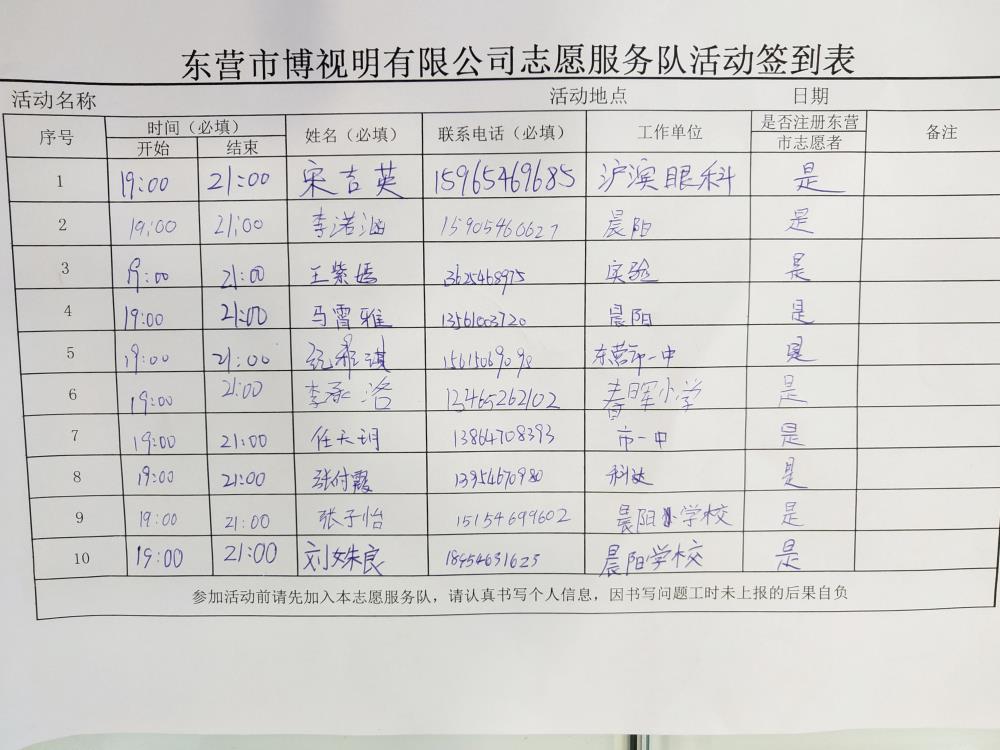 东营市博视明有限公司志愿服务队活动签到表
活动名称 活动地点 日期
序号 时间（必填） 姓名（必填） 联系电话（必填） 工作单位 是否注册东营市志愿者 备注
开始 结束
1 19:00 21:00 宋吉英 15965469685 沪滨眼科 是
2 19:00 21:00 李诺涵 15905460627 晨阳 是
3 19:00 21:00 王紫嫣 3625468975 实验 是
4 19:00 21:00 马霄雅 13561003720 晨阳 是
5 19:00 21:00 15615069090 东营市一中 是
6 19:00 21:00 李承洛 13465262102 春晖小学 是
7 19:00 21:00 任天玥 13864708393 市一中 是
8 19:00 21:00 张付霞 13954670980 科达 是
9 19:00 21:00 张子怡 15154699602 晨阳小学校 是
10 19:00 21:00 刘姝良 18954631623 晨阳学校 是
参加活动前请先加入本志愿服务队，请认真书写个人信息，因书写问题工时未上报的后果自负